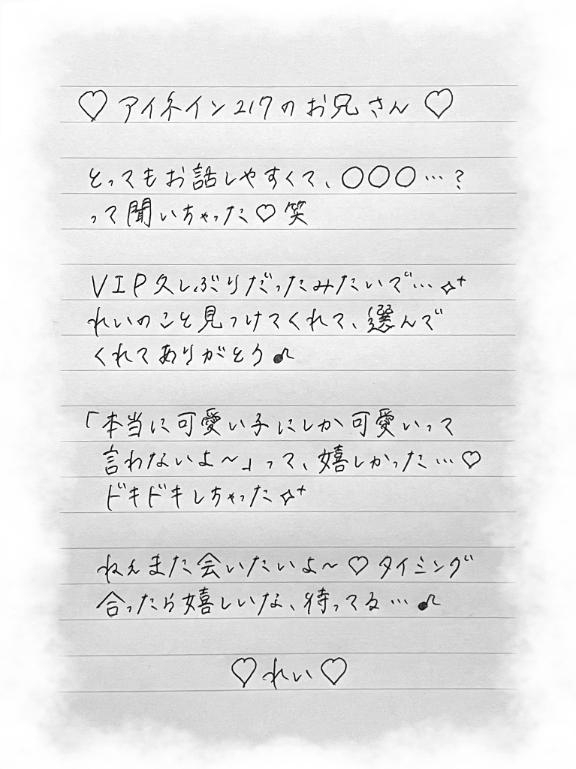 ♡ アイネイン217のお兄さん ♡
とってもお話しやすくて、○○○…？
って聞いちゃった♡笑
VIP久しぶりだったみたいで…✧⁺
れいのこと見つけてくれて、選んで
くれてありがとう♪
「本当に可愛い子にしか可愛いって
言わないよ〜」って、嬉しかった…♡
ドキドキしちゃった✧⁺
ねぇまた会いたいよ〜♡タイミング
合ったら嬉しいな、待ってる…♪
♡れい♡